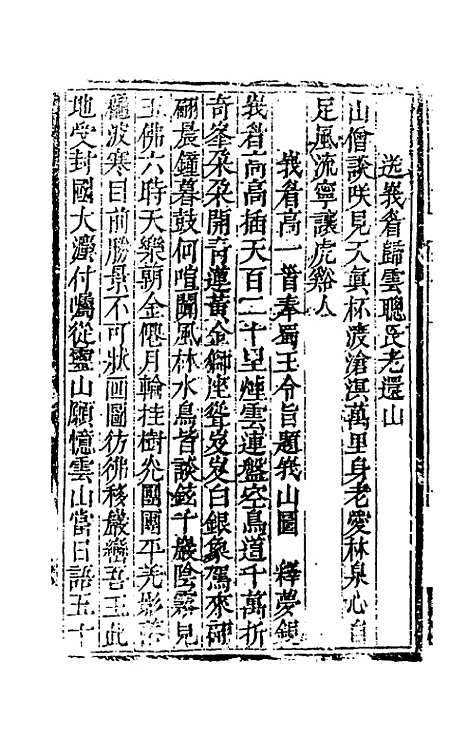 送峩眉歸雲聰長老還山
山僧談咲見天真杯渡滄溟萬里身老愛林泉心自
足風流寧讓虎谿人
峩眉高一首奉蜀王令旨題峩山圖　釋夢觀
峩眉高高插天百二十里煙雲連盤空鳥道千萬折
奇峯朶朶開青蓮黃金獅座聳岌岌白銀象駕來翩
翩晨鐘暮鼓何喧闐風林水鳥皆談鉉千巖陰靄見
玉佛六時天樂朝金僊月輪挂樹光團團平羌影落
波寒目前勝景不可狀画圖彷彿移巖巒吾王此
地受封國大法付囑從靈山願憶雲山當日語五十